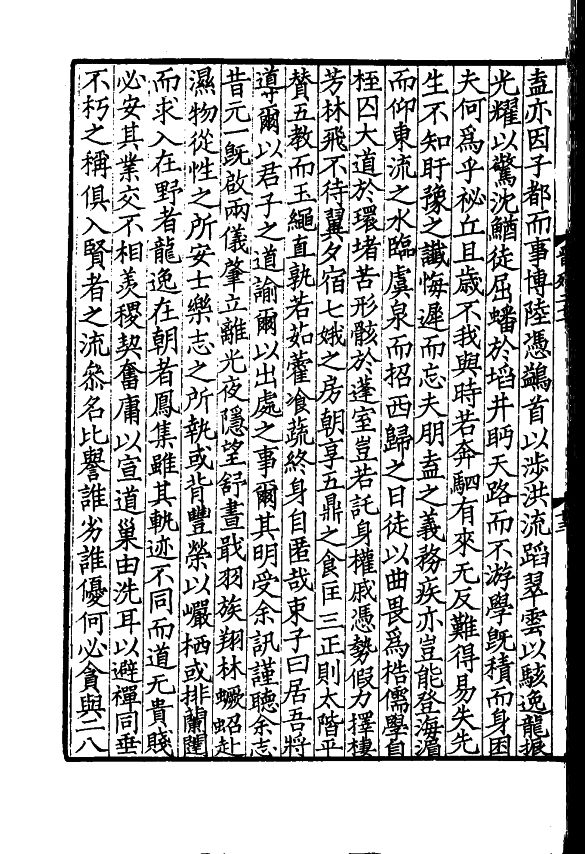 盍亦因子都而事博陸憑鷁首以涉洪流蹈翠雲以駭逸龍振
光耀以驚沈鰌徒屈蟠於埳井眄天路而不游學旣積而身困
夫何爲乎祕丘且歲不我與時若奔駟有來无反難得易失先
生不知盱豫之讖悔遲而忘夫朋盍之義務疾亦豈能登海湄
而仰東流之水臨虞泉而招西歸之日徒以曲畏爲梏儒學自
桎囚大道於環堵苦形骸於蓬室豈若託身權戚憑勢假力擇棲
芳林飛不待翼夕宿七娥之房朝享五鼎之食匡三正則太階平
贊五教而玉繩直孰若茹藿飡蔬終身自匿哉束子曰居吾將
導爾以君子之道諭爾以出處之事爾其明受余訊謹聽余志
昔元一旣啟兩儀肇立離光夜隱望舒晝戢羽族翔林蟩蛁赴
濕物從性之所安士樂志之所執或背豐榮以巖栖或排蘭闥
而求入在野者龍逸在朝者鳳集雖其軌迹不同而道无貴賤
必安其業交不相羡稷契奮庸以宣道巢由洗耳以避禪同垂
不朽之稱俱入賢者之流叅名比譽誰劣誰優何必貪與二八